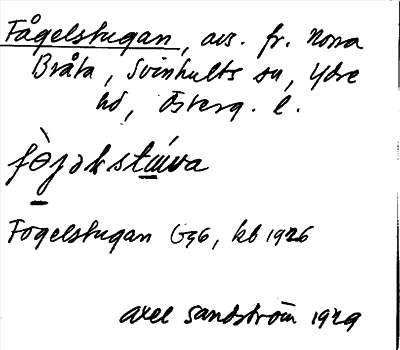 Fågelstugan, avs. fr. Norra
Bråta, Svinhults sn, Ydre
hd, Österg. l.
fò̱jəkstú̱va
Fogelstugan G96, kb 1926
Axel Sandström 1929